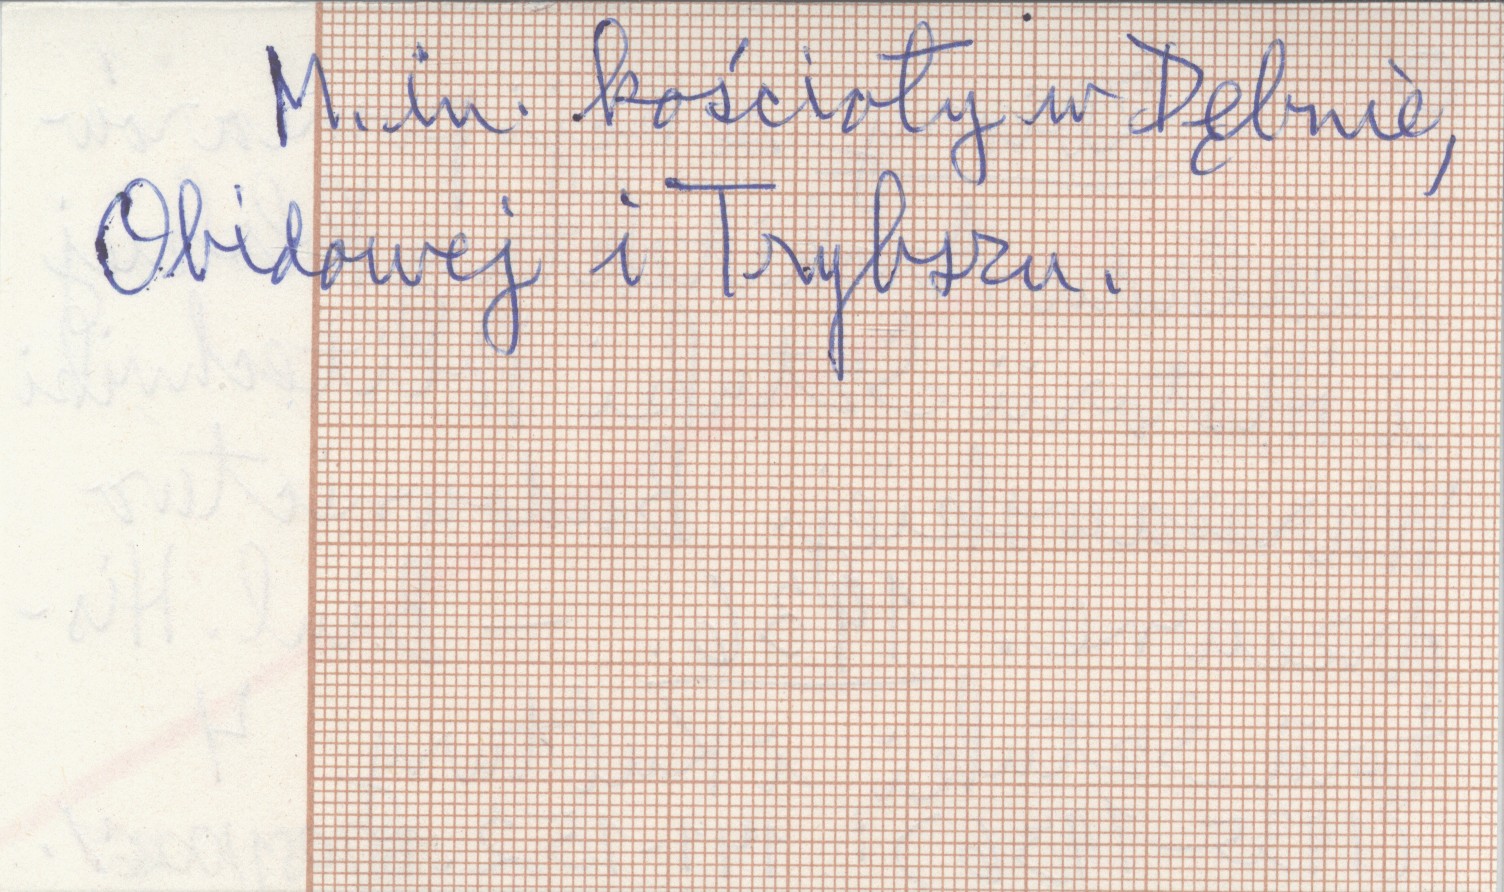 M. in. kościoły w Dębnie,
Obidowej i Trybszu.